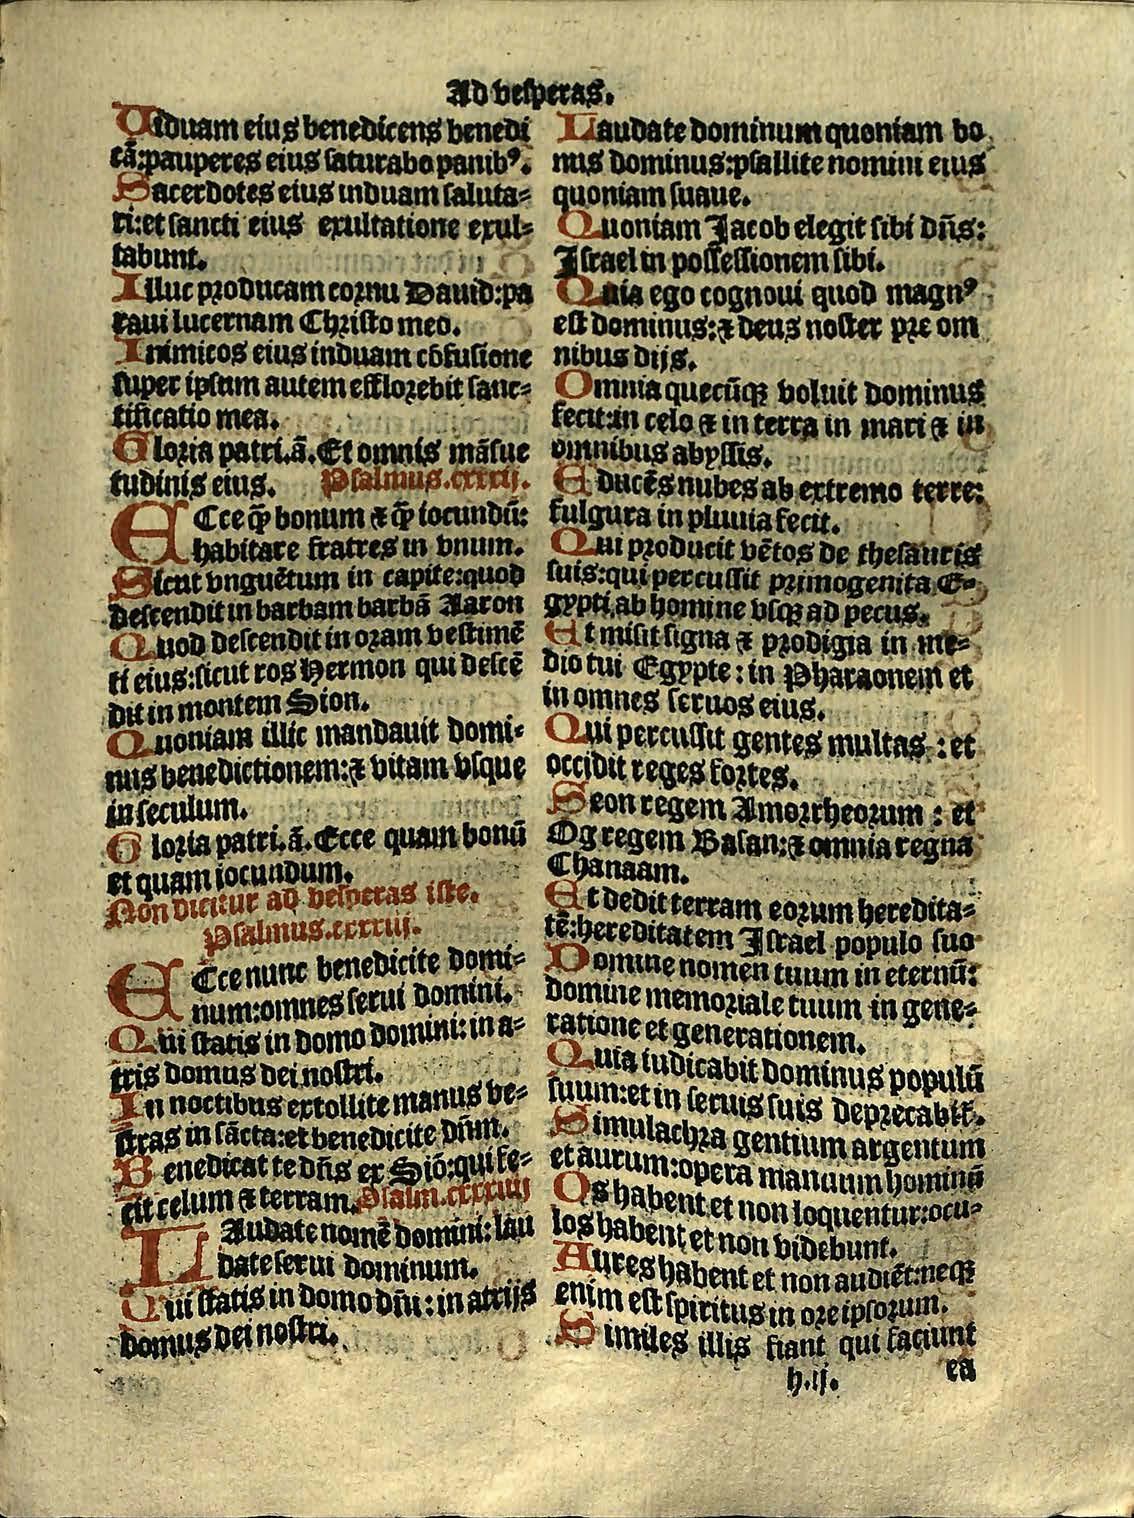 Ad vesperas.
Uiduam eius benedicens benedi
cā:pauperes eius saturabo panibꝰ.
Sacerdotes eius induam saluta⸗
ri:et sancti eius exultatione exul⸗
tabunt.
Illuc producam cornu Dauid:pa
raui lucernam Christo meo.
Inimicos eius induam cōfusione
super ipsum autem efflorebit sanc⸗
tificatio mea.
Gloria patri.ā.Et omnis māsue
tudinis eius. Psalmus.cxxxij.
ECce qͣ̄ bonum ⁊ qͣ̄ iocundū:
habitare fratres in vnum.
Sicut vnguētum in capite:quod
descendit in barbam barbā Aaron
Quod descendit in oram vestimē
ti eius:sicut ros Hermon qui descē
dit in montem Sion.
Quoniam illic mandauit domi⸗
nus benedictionem:⁊ vitam vsque
in seculum.
Gloria patri.ā.Ecce quam bonū
et quam iocundum.
Non dicitur ad vesperas iste.
Psalmus.cxxxiij.
ECce nunc benedicite domi⸗
num:omnes serui domini.
Qui statis in domo domini:in a⸗
triis domus dei nostri.
In noctibus extollite manus ve⸗
stras in sācta:et benedicite dn̄m.
Benedicat te dn̄s ex Siō:qui fe⸗
cit celum ⁊ terram. Psalm.cxxxiiij
LAudate nomē domini:lau
date serui dominum.
Qui statis in domo dn̄i:in atrijs
domus dei nostri.
Laudate dominum quoniam bo
nus dominus:psallite nomini eius
quoniam suaue.
Quoniam Jacob elegit sibi dn̄s:
Israel in possessionem sibi.
Quia ego cognoui quod magnꝰ
est dominus:⁊ deus noster pre om
nibus dijs.
Omnia quecūqꝫ voluit dominus
fecit:in celo ⁊ in terra in mari ⁊ in
omnibus abyssis.
Educēs nubes ab extremo terre:
fulgura in pluuia fecit.
Qui producit vētos de thesauris
suis:qui percussit primogenita E⸗
gypti,ab homine vsqꝫ ad pecus.
Et misit signa ⁊ prodigia in me⸗
dio tui Egypte:in Pharaonem et
in omnes seruos eius.
Qui percussit gentes multas:et
occidit reges fortes.
Seon regem Amorrheorum:et
Og regem Basan:⁊ omnia regna
Chanaam.
Et dedit terram eorum heredita⸗
tē:hereditatem Israel populo suo
Domine nomen tuum in eternū:
domine memoriale tuum in gene⸗
ratione et generationem.
Quia iudicabit dominus populū
suum:et in seruis suis deprecabit̄.
Simulachra gentium argentum
et aurum:opera manuum hominū
Os habent et non loquentur:ocu⸗
los habent et non videbunt.
Aures habent et non audiēt:neqꝫ
enim est spiritus in ore ipsorum.
Similes illis fiant qui faciunt
ea
h.ij.